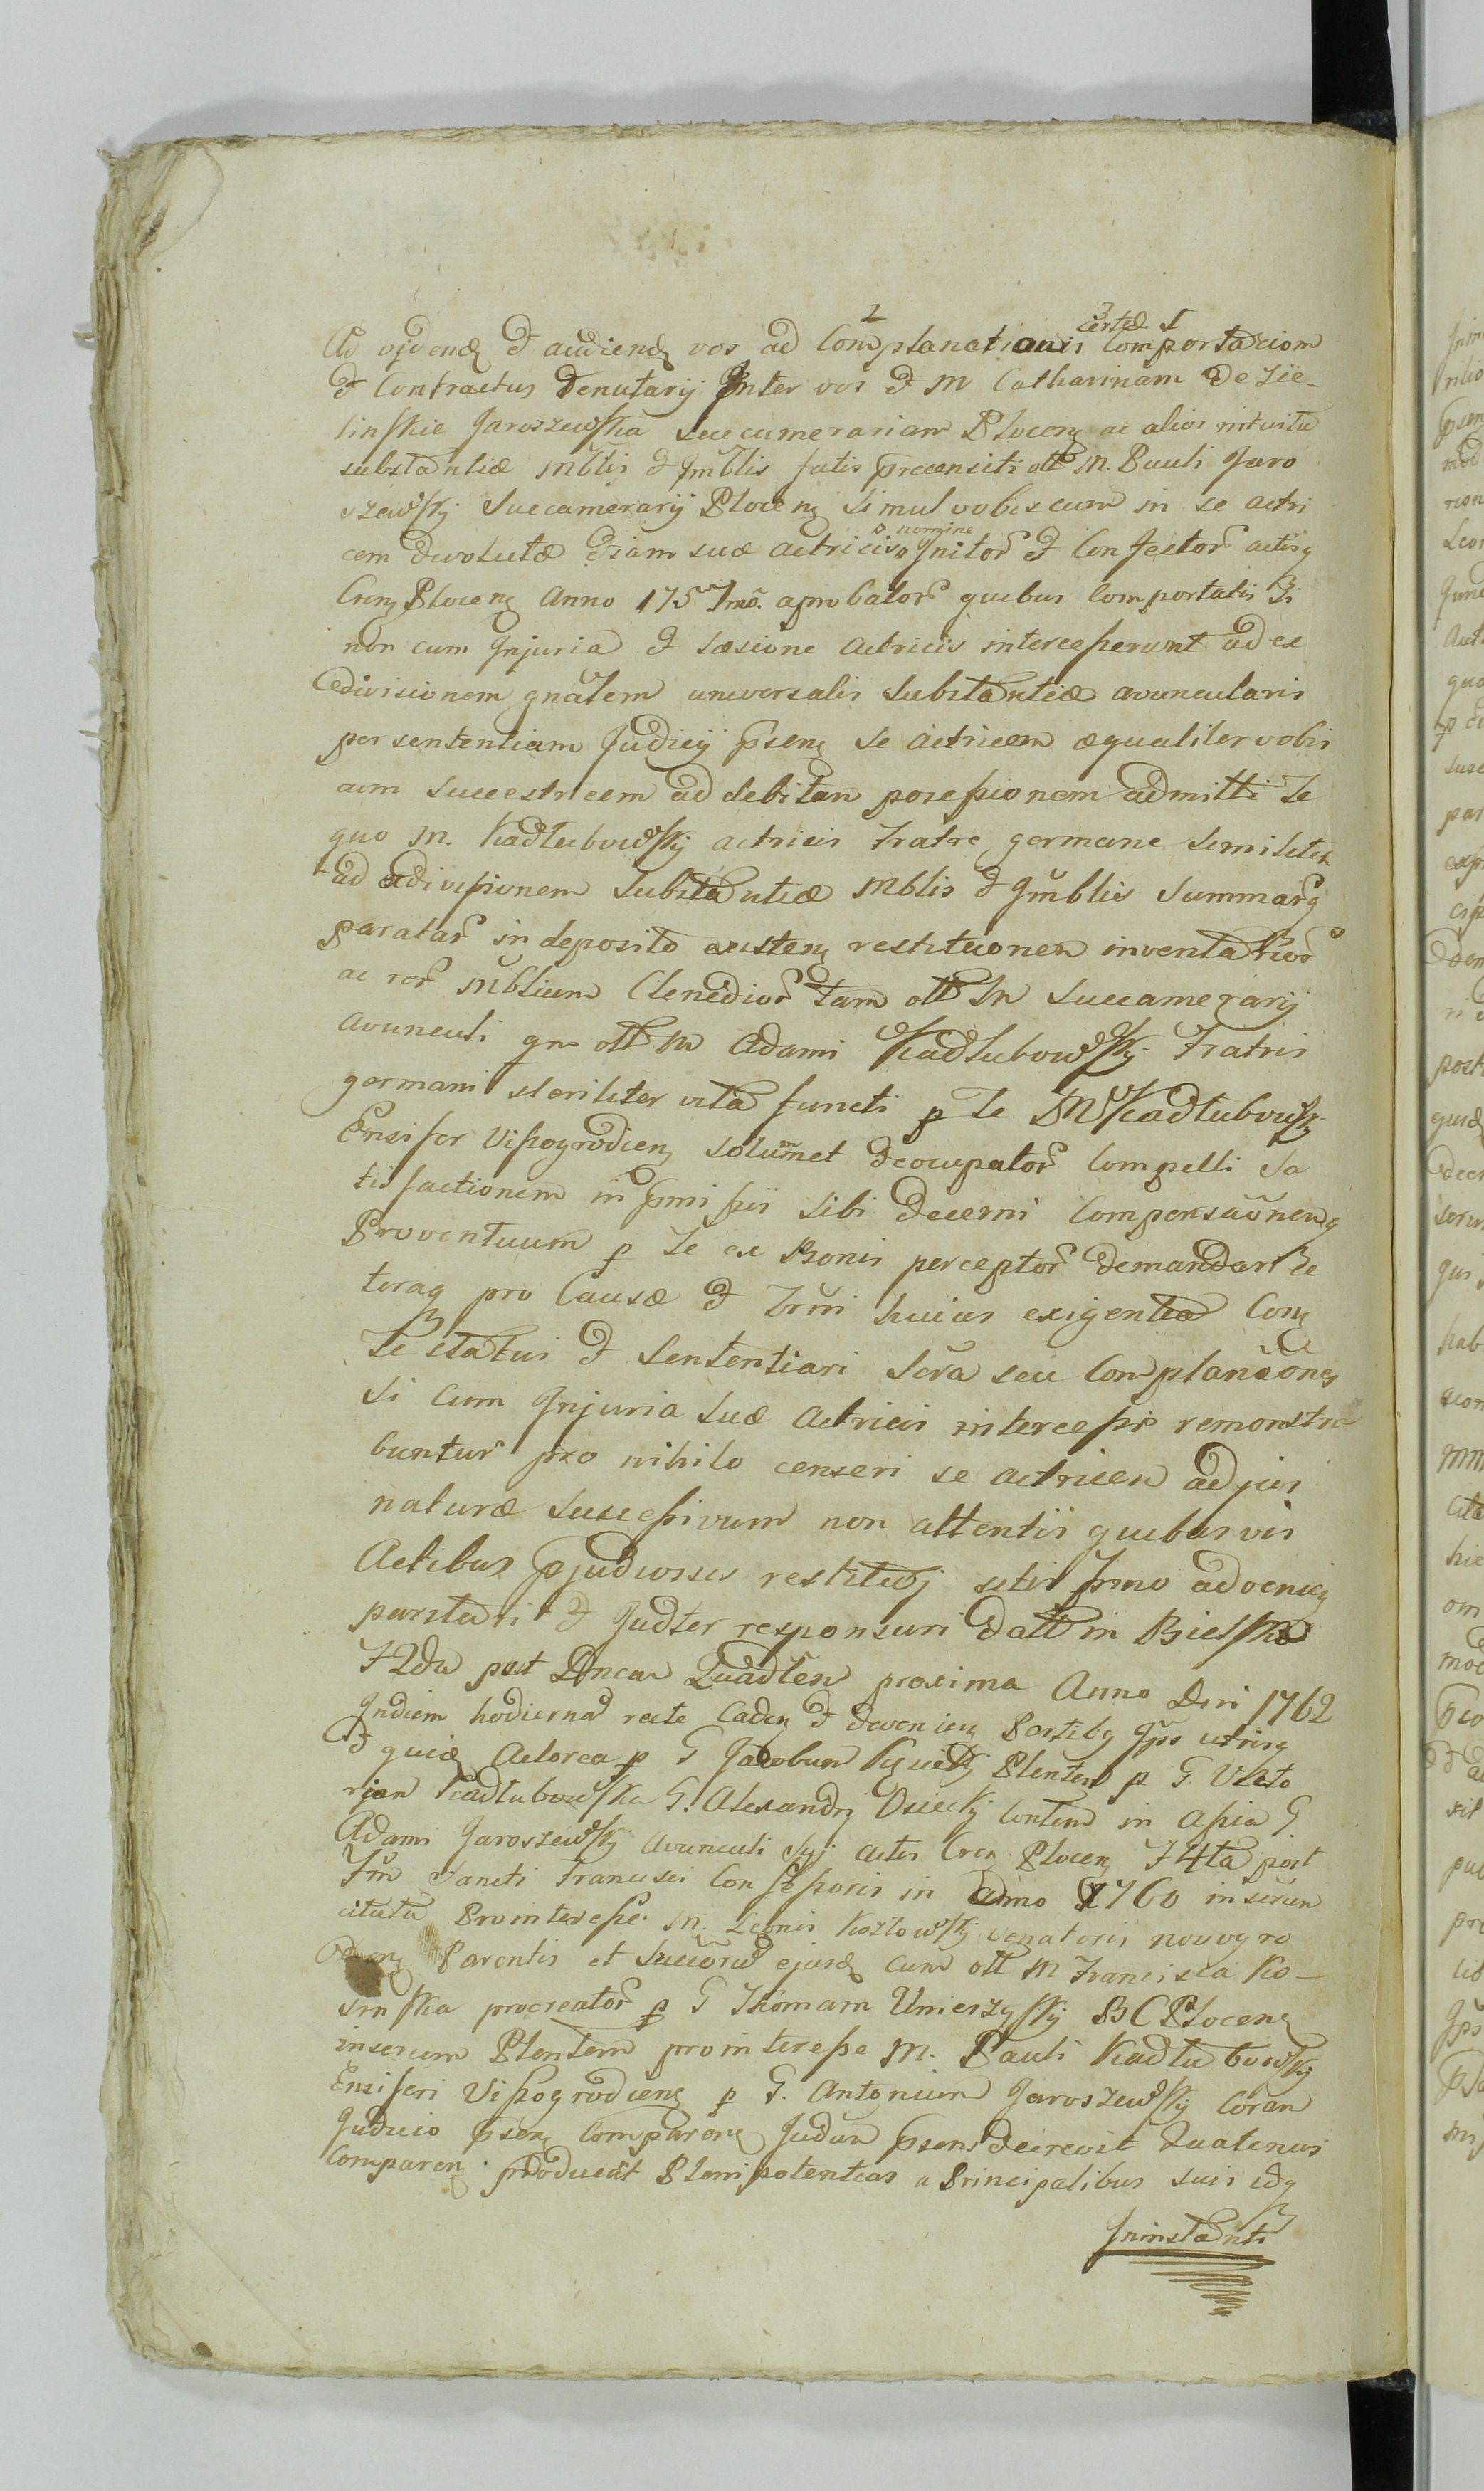 Ad vjdend et audiend vos ad Complanationis certæ Comportaciom
et Contractus Denutarij Inter vos et M Catharinam de Zie-
linskie Jaroszewska Succamerariam Plocen ac alios intuitu
substantiæ Mblis et Imblis fatis præcensiti olt M. Pauli Jaro
szewskj Succamerarij Plocen simul vobiscum in se actri
cem devolutæ etiam suæ actricis nomine Initor et Confector actisq
Cren Plocen Anno 1757mo. aprobator quibus Comportatis si
non cum Injuria et Læsione Actricis interceperunt ad ex
divisionem gnalem universalis Substantiæ avuncularis
per sententiam Judicij Psen se actricem æqualiter vobis
cum Succestricem ad debitam possessionem admitti Te
quo M. Kadłubowskj actricis Fratre germane Similiter
ad exdivisionem Substantiæ Mblis et Imblis Summarq
paratar in deposito existen restitucionem inventarior
ac rer Mblium Clenedior tam olt M Succamerarij
avunculi qm olt M Adami Kadłubowskj Fratris
germani steriliter vita functi p Te M Kadłubowskj
Ensifer Vissogrodien solummet deocupator Compelli Sa
tisfactionem in Pmissis sibi Decerni Compensaonemq
Proventuum p Te ex Bonis perceptor demandari Ce
teraq pro Causæ et Trmi huius exigentia Con
Te statui et Sententiari Scra seu Complanaones
si cum Injuria Suæ Actricis intercepisse remonstra
buntur pro nihilo censeri se actricem ad jus
naturæ Successivum non attentis quibusvis
Actibus Pjudiciosis restituj sitis Trmo advenien
parituri et Judter responsuri Datt in Bielsko
F 2da post Dncam Quadlem proxima Anno Dni 1762
Indiem hodierna recte Caden et devenien Partibq Ips utrisq
et quidq Actorea p G Jacobum Kijeckj Plentem p G. Victo
riam Kadłubowska G. Alexandrj Osieckj Contem in Assia G
Adami Jaroszewskj avunculi Sui actis Cren Plocen F 4ta post
Fm Sancti Francisci Confessoris in Anno 1760 inserum
citata Prointeresse M. Leonis Kozłowskj venatoris novogro
dien Parentis et Succorum ejusd cum olt M Francisca Ko-
sinska procreator p G Thomam Unierzyskj BC Plocen
inserum Plentem prointeresse M. Pauli Kadłubowskj
Ensiferi Vissogrodien p G. Antonium Jaroszewskj Coram
Judicio Psen Comparen Judum Psens decrevit Quatenus
Comparen producat Plenipotentias a Principalibus suis idq
Ininstanti